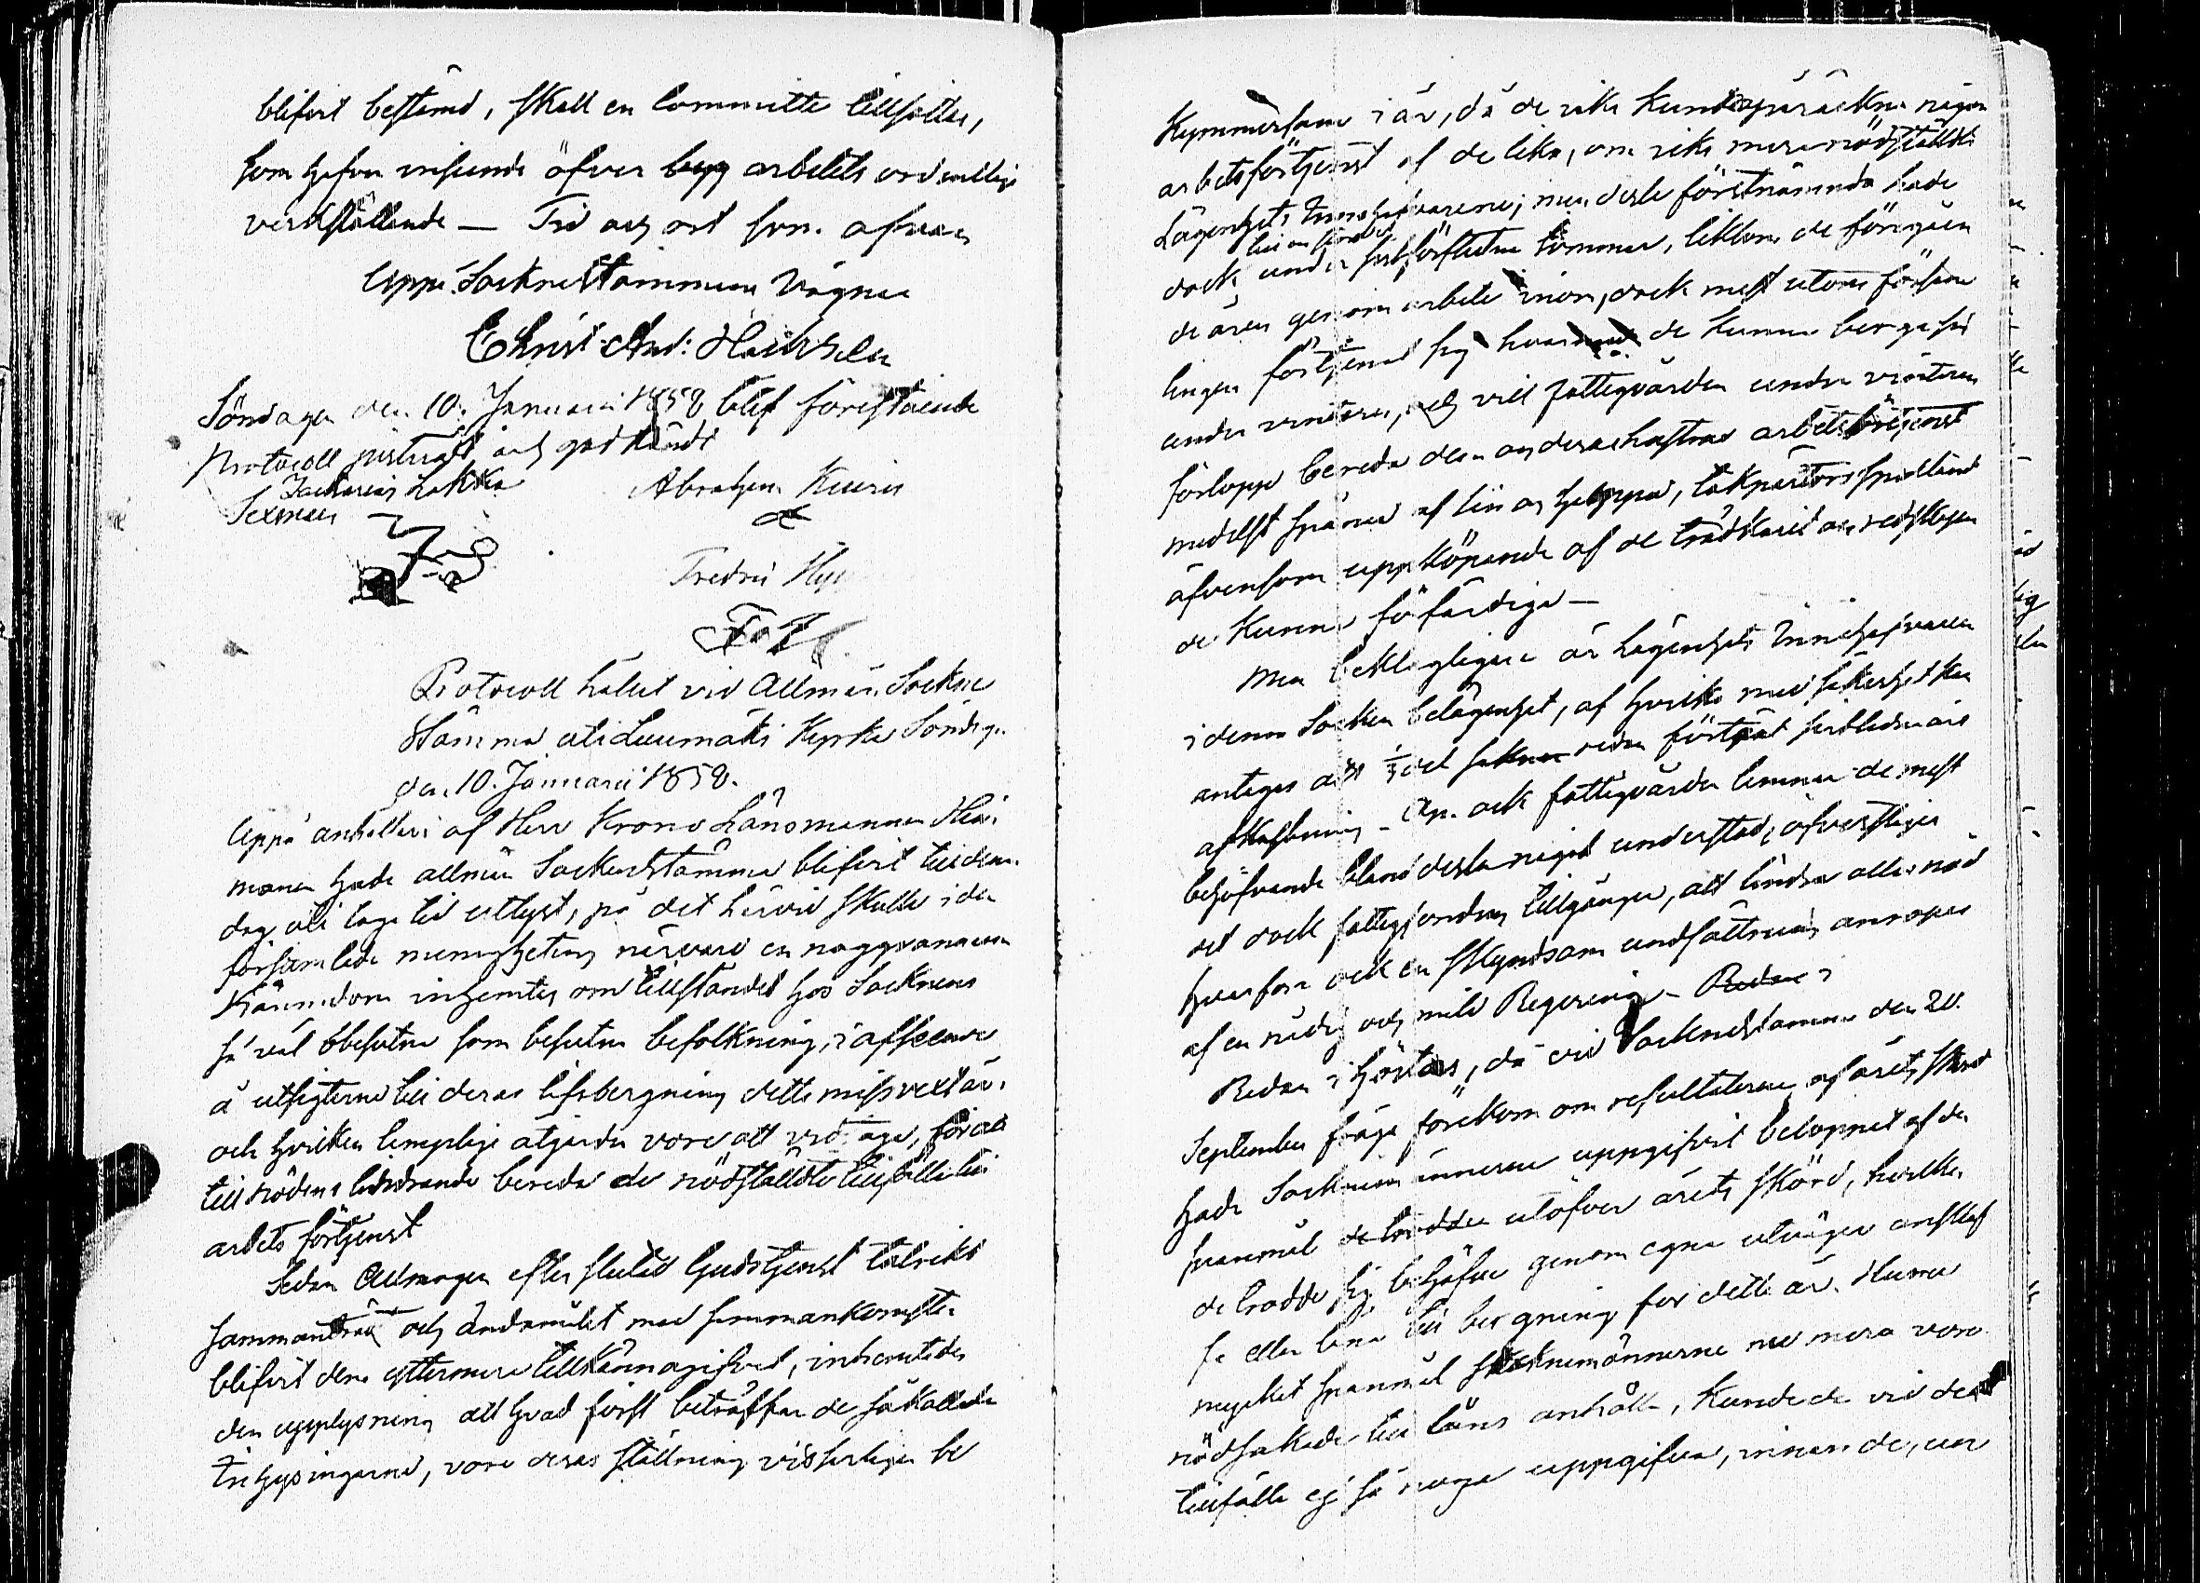 blifvit bestämd, skall en Committe tillsättas,
som hafva inseende öfver byg arbetets ordentliga
verkställande — Tid och ort som ofvan
Uppå Sockne Stämmans Vägnar
Christ And:
Söndagen den 10. Januari 1858 blef förestående
Protocoll justerat och godkändt
Zacharias Lakka Abraham Kuiri
Sexman
Fredric
Protocoll hållet vid Allmän Sockne
Stämma uti Luumäki Kyrka Söndagen
den 10. Januarii 1858.
Uppå anhållan af Herr Krono Länsmannen
hade allmän Sockenstämma blifvit till denna
dag uti laga tid utlyst, på det härvid skulle i den
församlade menighetens närvaro en noggrannare
kännedom inhemtas om tillståndet hos Socknens
så väl obesutna som besutna befolkning, i afseende
å utsigterna till deras lifsbergning detta missvextår,
och hvilken lämpliga åtgärder vore att vidtaga, för att
till nödens lindrande bereda de nödställdte tillfälle till
arbets förtjenst
Sedan Allmogen efter slutad Gudstjenst talrikt
sammanträdt och ändamålet med sammankomsten
blifvit dem yttermera tillkännagifvet, inhemtades
den upplysning att hvad först beträffar de så kallade
Inhysingarne, vore deras ställning visserligen be
kymmersam i år, då de icke kunde påräkna någon
arbetsförtjenst af de lika, om icke mera nödställdte
Lägenhets Innehafvarene; men desse förstnämnda hade
till en
dock under sistförflutne sommar, liksom de föregåen
de åren genom arbete inom, dock mest utom försam
lingen förtjenat sig hvarmed de kunna berga sig
under vintern, och vill fattigvården under vinterns
förlopp bereda dem och deras hustrur arbetsförtjenst
medelst spånad af lin och hampa,
äfvensom uppköpande af de trädkäril och redskap
de kunna förfärdiga —
Men beklagligare är Lägenhets Innehafvarnes
i denna Socken belägenhet, af hvilka med säkerhet kan
antagas att 1/3 del saknar redan förtärt
Om ock fattigvården lemnar de mest
behöfvande bland dessa något understöd, öfverstiger
det dock fattigfondens tillgångar, att lindra allas nöd
hvarföre ock en skyndsam undsättning anropas
af en nådig och mild Regering — Redan i
Redan i höstas, då vid Socknestämman den 20.
September fråga förekom om resultaterne af årets skörd
hade Socknens männerne uppgifvit beloppet af den
spanmål de trodde utöfver årets skörd, hvilken
de trodde sig behöfva genom egna utvägar anskaf
fa eller låna till bergning för detta år. Huru
mycket spanmål Socknemännerne nu mera vore
nödsakade till låns anhålla, kunde de vid detta
tillfälle ej så noga uppgifva, innan de,